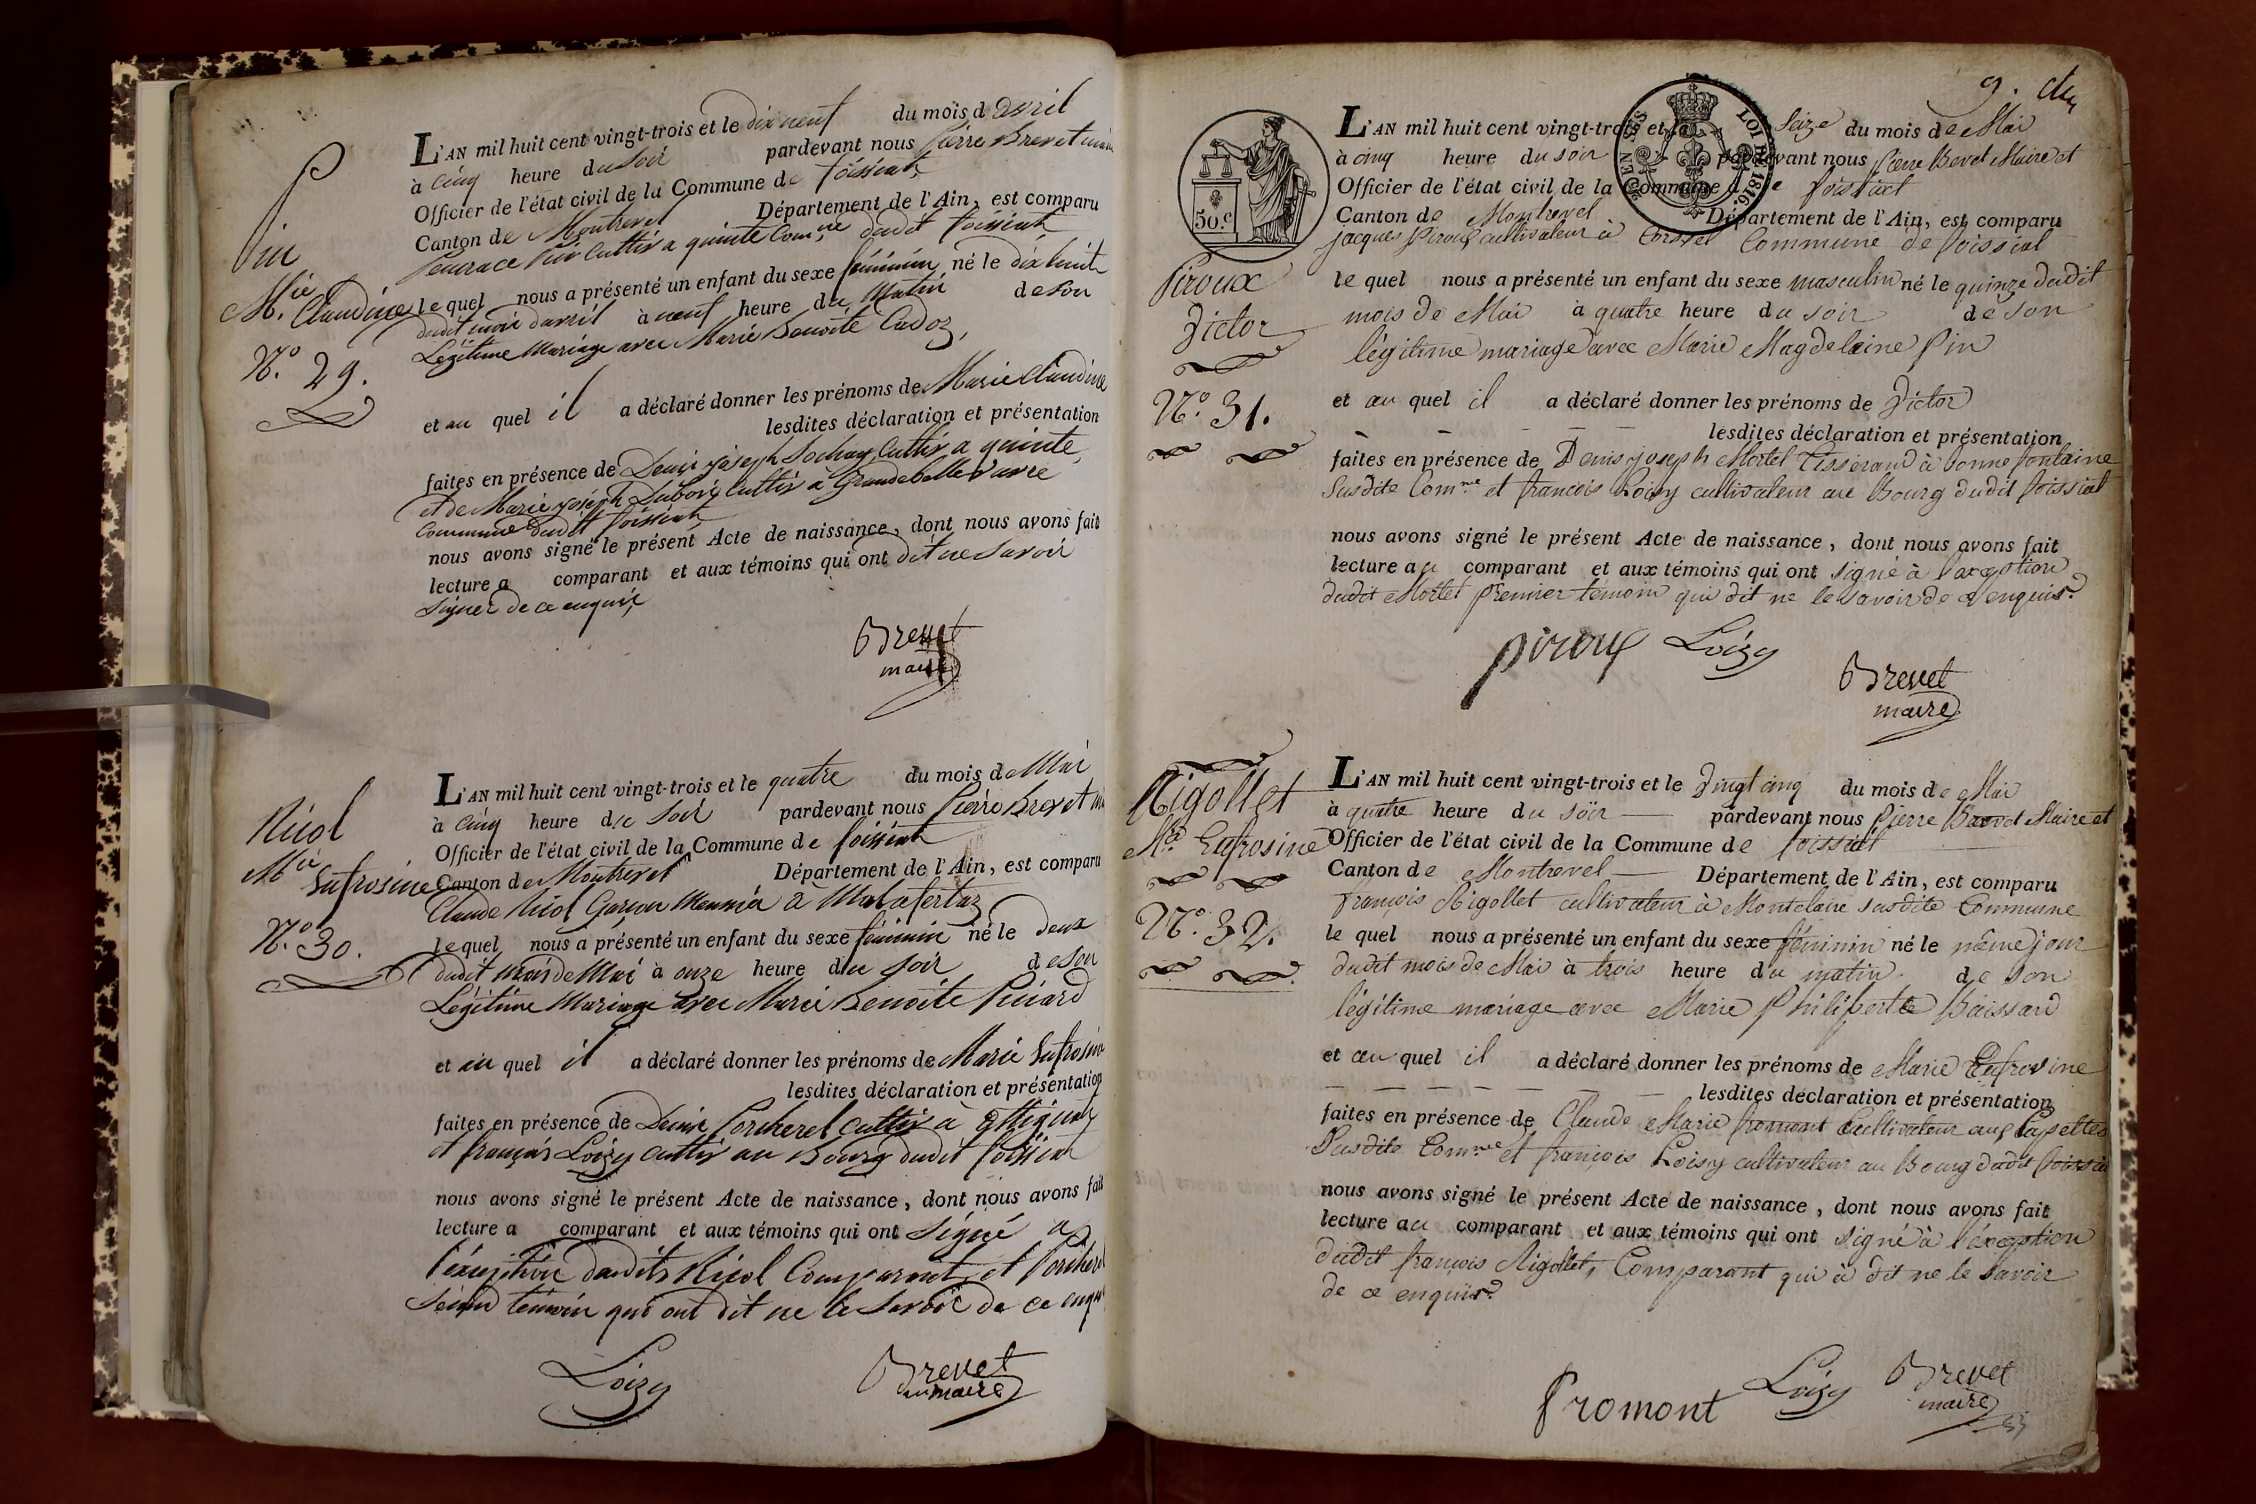 Pin
Mie Claudine
N.o 29.
L'AN mil huit cent vingt-trois et le dix neuf du mois d avril
à cinq heure du Soir pardevant nous Pierre Brevet
Officier de l'état civil de la Commune de foissiat
Canton de Montrevel Département de l'Ain, est comparu
Pin Cultir a quinte Comne dudit foissiat
le quel nous a présenté un enfant du sexe féminin né le dix huit
dudit mois davril à neuf heure du Matin de son
Légitime Mariage avec Marie Benoite Cadoz,
et au quel il a déclaré donner les prénoms de Marie Claudine
lesdites déclaration et présentation
faites en présence de Denis joseph Sochay Cultir a quinte
et de Marie joseph Cultir à Grandebellevavre
Commune dudit foissiat
nous avons signé le présent Acte de naissance, dont nous avons fait
lecture a comparant et aux témoins qui ont dit ne Savoir
Signer de ce enquis
Brevet
maire
Nicol
Mie Eufrosine
N.o 30.
L'AN mil huit cent vingt-trois et le quatre du mois de Mai
à cinq heure du Soir pardevant nous Pierre Brevet
Officier de l'état civil de la Commune de foissiat
Canton de Montrevel Département de l'Ain, est comparu
Claude Nicol Garson Meunier à Malafertaz
le quel nous a présenté un enfant du sexe féminin né le Deux
dudit mois de Mai à onze heure du Soir de son
Légitime Mariage avec Marie Benoite Picard
et au quel il a déclaré donner les prénoms de Marie Eufrosine
lesdites déclaration et présentation
faites en présence de Denis Porcherel Cultir à
et françois Loizy Cultir au Bourg dudit foissiat
nous avons signé le présent Acte de naissance, dont nous avons fait
lecture a comparant et aux témoins qui ont Signé a
l'éxception dudits Nicol Comparant et Porcherel
témoin qui ont dit ne le Savoir de ce
Loizy
Brevet
maire
9.
50.c
LOI DE 1816.
Piroux
Victor
N.o 31.
L'AN mil huit cent vingt-trois et le Seize du mois de Mai
à cinq heure du soir pardevant nous Pierre Brevet Maire et
Officier de l'état civil de la Commune de foissiat
Canton de Montrevel Département de l'Ain, est comparu
jacques Piroux cultivateur à Commune de foissiat
le quel nous a présenté un enfant du sexe masculin né le quinze dudit
mois de Mai à quatre heure du soir de son
légitime mariage avec Marie Magdelaine Pin
et au quel il a déclaré donner les prénoms de Victor
lesdites déclaration et présentation
faites en présence de Denis joseph Mortel Tisserand à bonne fontaine
Susdite Comne et francois Loisy cultivateur au Bourg dudit foissiat
nous avons signé le présent Acte de naissance, dont nous avons fait
lecture au comparant et aux témoins qui ont signé à l'axception
dudit Mortel premier témoin qui dit ne le savoir de ce enquis.
piroux Loizy
Brevet
maire
Rigollet
Mie Eufrosine
N.o 32.
L'AN mil huit cent vingt-trois et le vingt cinq du mois de Mai
à quatre heure du soir pardevant nous Pierre Brevet Maire et
Officier de l'état civil de la Commune de foissiat
Canton de Montrevel Département de l'Ain, est comparu
françois Rigollet cultivateur à Montclaire susdite Commune
le quel nous a présenté un enfant du sexe féminin né le même jour
dudit mois de Mai à trois heure du matin de son
légitime mariage avec Marie Philiperte Baissard
et au quel il a déclaré donner les prénoms de Marie Eufrosine
lesdites déclaration et présentation
faites en présence de Claude Marie fromont Cultivateur aux Capettes
Susdite Comne et françois Loisy cultivateur au Bourg dudit foissiat
nous avons signé le présent Acte de naissance, dont nous avons fait
lecture au comparant et aux témoins qui ont signé à l'éxception
dudit françois Rigollet, Comparant qui à dit ne le savoir
de ce enquis.
fromont Loizy Brevet
maire